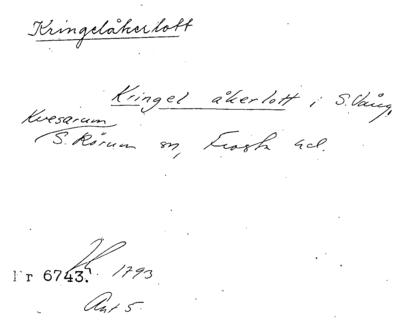 Kringelåkerlott
Kringel åkerlott i S. Vång,
Kvesarum
S. Rörum sn, Frosta hd.
Nr 6743. 1793
Akt 5.